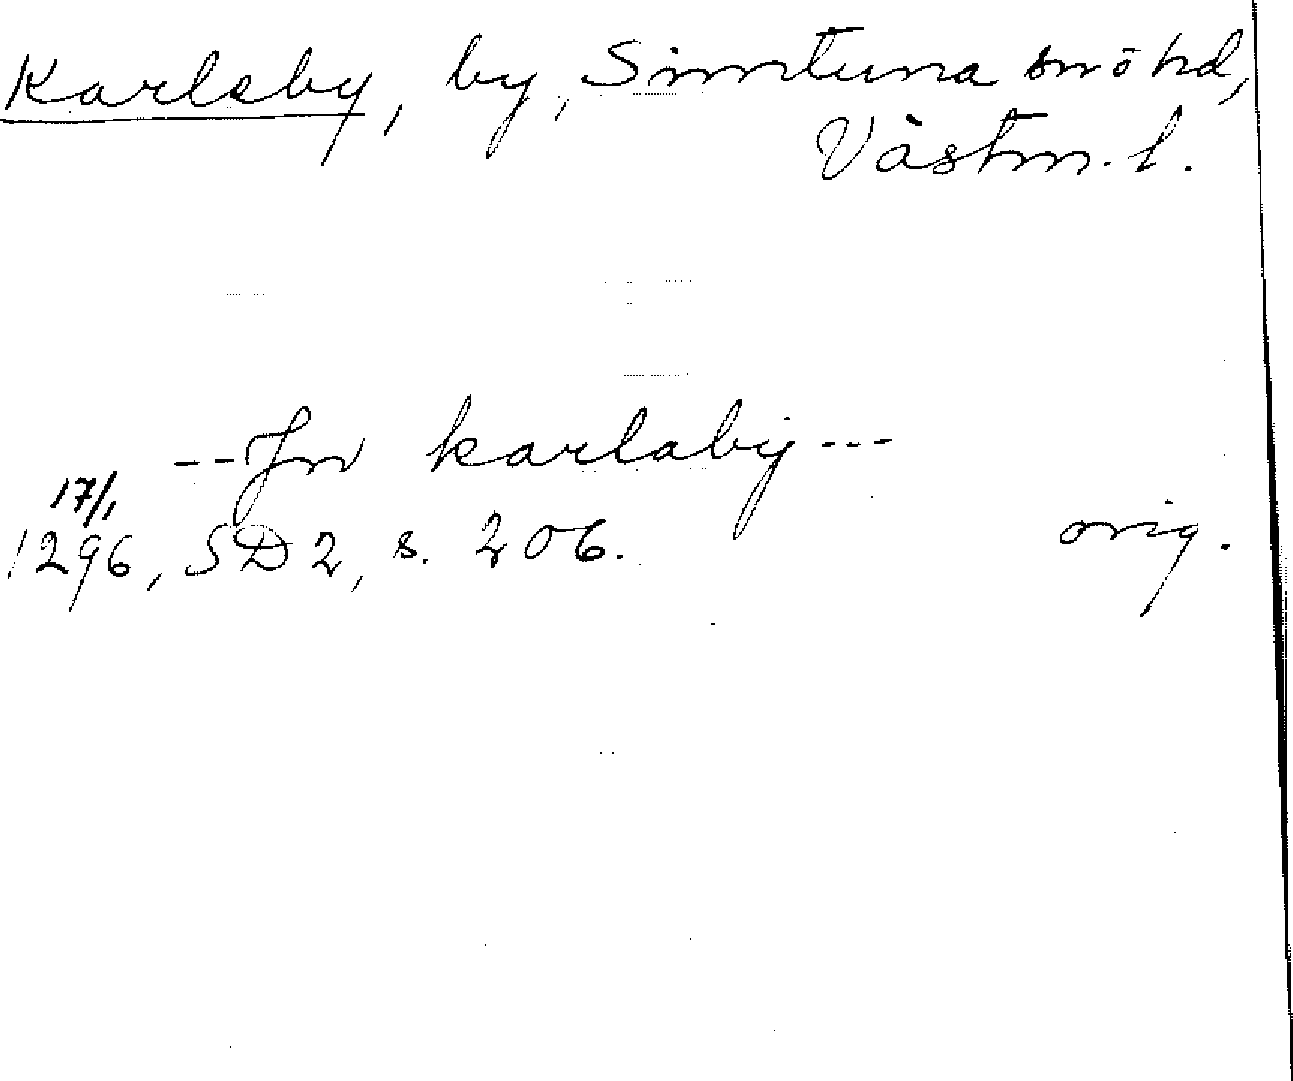 Karlsby, by, Simtuna sn o hd,
Västm. l.
--Jn karlaby---
17/1
1296, SD 2, s. 206. orig.